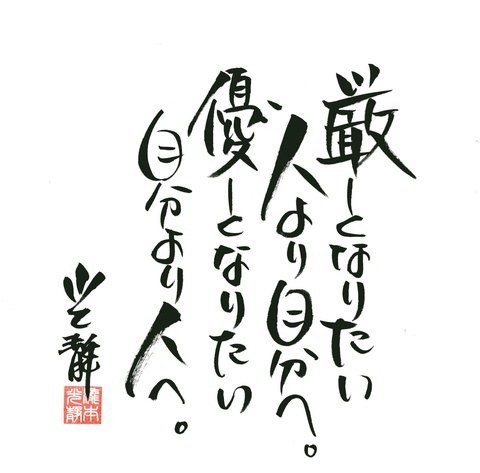 厳しとなりたい
人より自分へ。
優しとなりたい
自分より人へ。